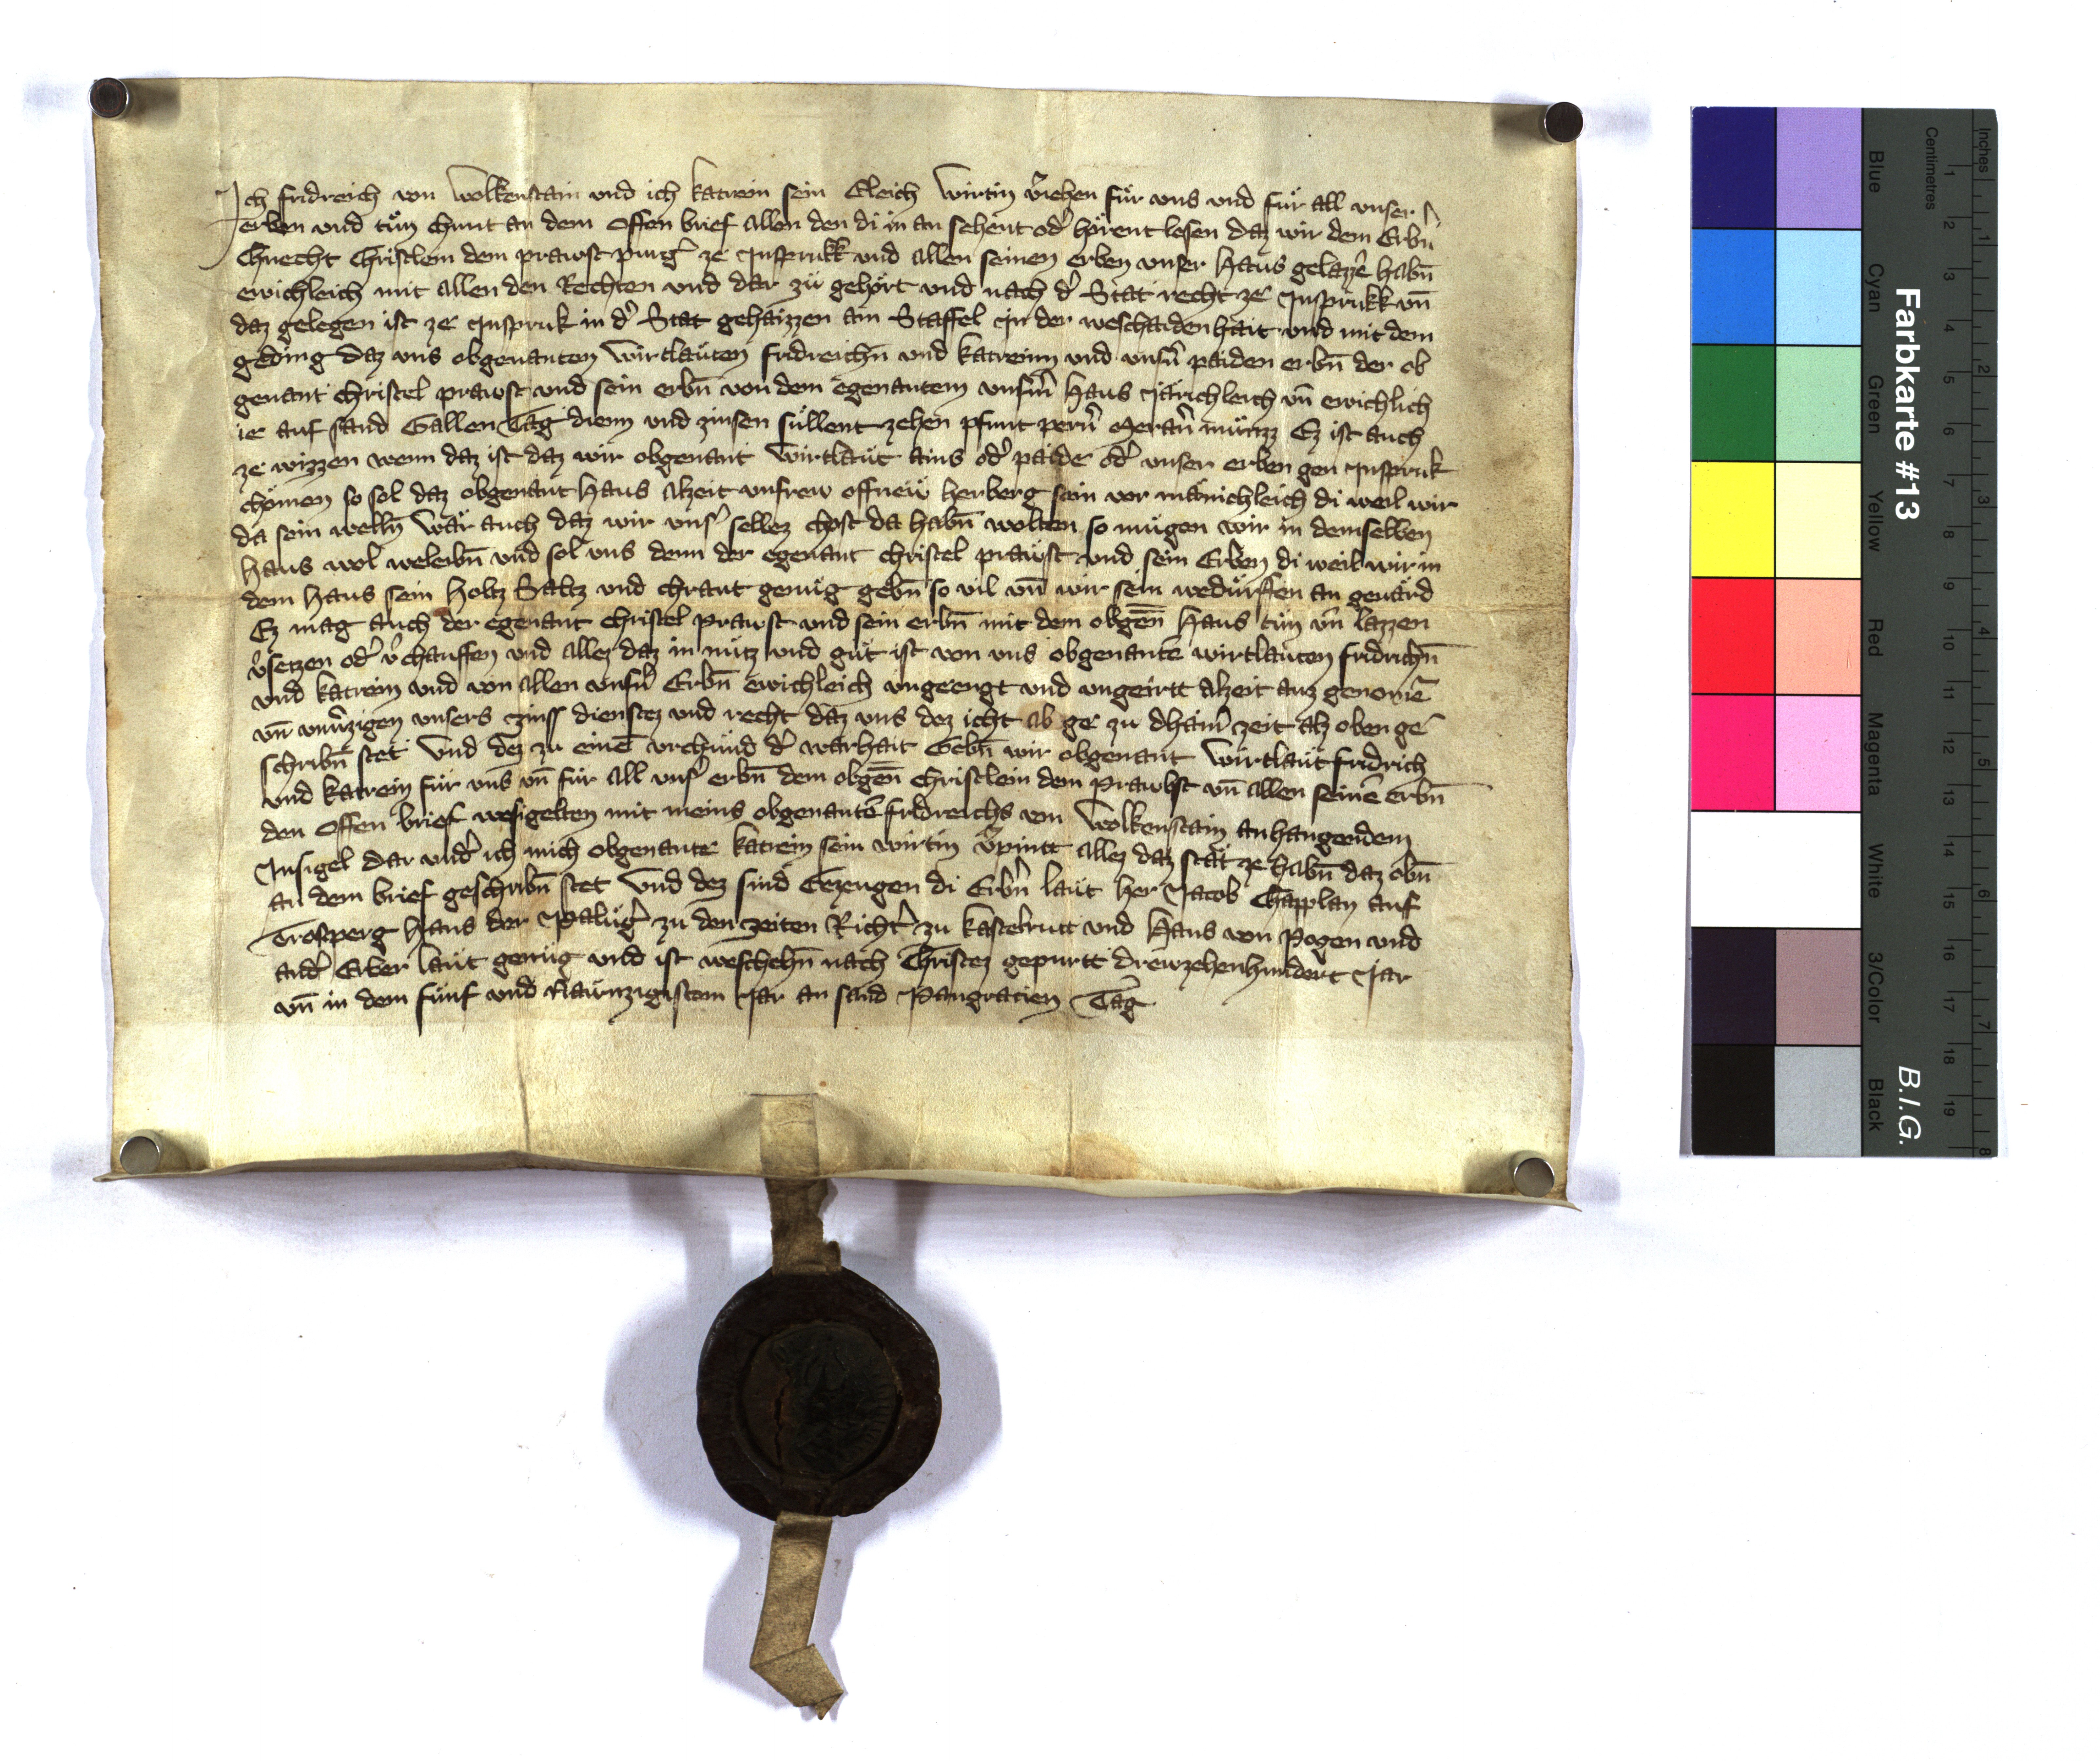 Ich fridreich von Wolkenstain und ich katrein sein Eleich Wirtin v̾iehen fuͤr uns und fuͤr all unser
erben und tuͤn chunt an dem Offen brief allen den di in an sehent od̾ hoͤrent lesen daz wir dem Erbn̄
Chnecht Christlein dem prawst purg̾ ze Insprukk und allen seinen erben unser Haus gelazzē habn̄
ewichleich mit allen den Rechten und dar zuͤ gehoͤrt und nach d̾ Stat recht ze Insprukk un̄
daz gelegen ist ze Inspruk in d̾ Stat gehaizzen am Staffel In der weschaidenhait und mit dem
geding daz uns obgenanten Wirtlaͤuten fridreichn̄ und katreinn und unsn̾ paiden erbn̄ der ob
genant christel prawst und sein erbn̄ von dem egenantem unsm̾ Haus Jaͤrichleich un̄ ewichlich
ie auf sand Gallen Tag dienn und zinsen suͤllent zehen pfunt pern̾ Meran̾ muͤnzz Ez ist auch
ze wizzen wenn daz ist daz wir obgenant Wirtlaͤut ains od̾ paide od̾ unser erben gen Inspruk
choͤmen so sol daz obgenant Haus alzeit unsrew offnew herberg sein vor maͤnichleich di weil wir
da sein welln̄ Waͤr auch daz wir uns̾ selbez chost da habn̄ wolten so muͤgen wir in demselben
Haus wol weleibn̄ und sol uns denn der egenant christel prawst und sein Erben di weil wir in
dem Haus sein Holtz Saltz und chraut genuͤg gebn̄ so vil un̄ wir sein weduͤrffen an geuaͤrd
Ez mag auch der egenant christel prawst und sein erbn̄ mit dem obgen̄ Haus tuͤn un̄ lazzen
v̾setzen od̾ v̾chauffen und allez daz in nuͤtz und guͤt ist von uns obgenantē wirtlaͤuten fridrichn̄
und katrein und von allen unsn̾ Erbn̄ ewichleich ungeengt und ungeirtt alzeit auz genomē
un̄ unv̾zigen unsers zinss dienstez und recht daz uns dez icht ab ge zu dhain̾ zeit alz oben ge
schribn̄ stet Und dez zu einē urchuͤnd d̾ warhait Gebn̄ wir obgenant Wirtlaͤut fridrich
und katrein fuͤr uns un̄ fuͤr all uns̾ erbn̄ dem obgen̄ christlein dem Prawbst un̄ allen seinē erbn̄
den Offen brief wesigelten mit meins obgenantē fridreichs von Wolkenstain anhangendem
Insigel dar und̾ ich mich obgenante katrein sein wirtin v̾pintt allez daz staͤt ze habn̄ daz obn̄
an dem brief geschribn̄ stet Und dez sind Gezeugen di Erbn̾ laͤut her Jacob Chapplan auf
Trosperg Hans der Paluͤg̾ zu den zeiten Richt̾ zu kastelrutt und Hans von Pogen und
and̾ Erber laͤut genuͤg und ist weschehn̄ nach Christez gepurtt drewzehenhundert Jar
un̄ in dem fuͤnf und Naͤunzigistem Jar an sand Pangracien Tag
Farbkarte #13
B.I.G.
Blue
Cyan
Green
Yellow
Red
Magenta
White
3/Color
Black
Centimetres
Inches
1 2 3 4 5 6 7 8 9 10 11 12 13 14 15 16 17 18 19
1 2 3 4 5 6 7 8